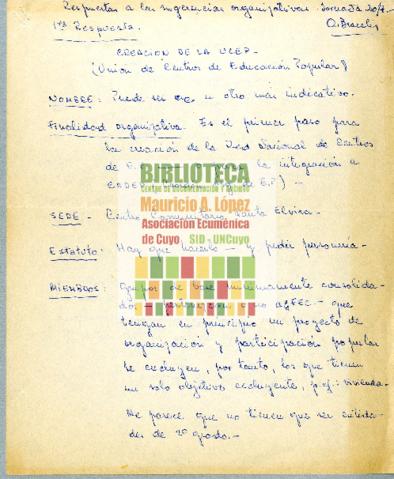 Respuestas a las sugerencias organizativas. Jornada 20/4.
1ra Respuesta.
CREACION DE LA UCEP-
(Unión de Centros de Educación Popular)
NOMBRE: Puede ser u otro más indicativo.
Finalidad organizativa. Es el primer paso para
la creación de la Red Nacional de Centros
de la integración a
E.P.) -
SEDE - Centro Comunitario Santa Elvira.
Estatuto: Hay que hacerlo - y pedir personería-
MIEMBROS: Grupos de base mínimamente consolida-
dos - que
tengan en principio un proyecto de
organización y participación popular
Se excluyen, por tanto, los que tienen
un solo objetivo excluyente, p.ej: vivienda.
Me parece que no tienen que ser entida-
des de 2º grado.-
BIBLIOTECA
CENTRO DE DOCUMENTACIÓN Y ARCHIVO
Mauricio A. López
Asociación Ecuménica
de Cuyo SID - UNCuyo